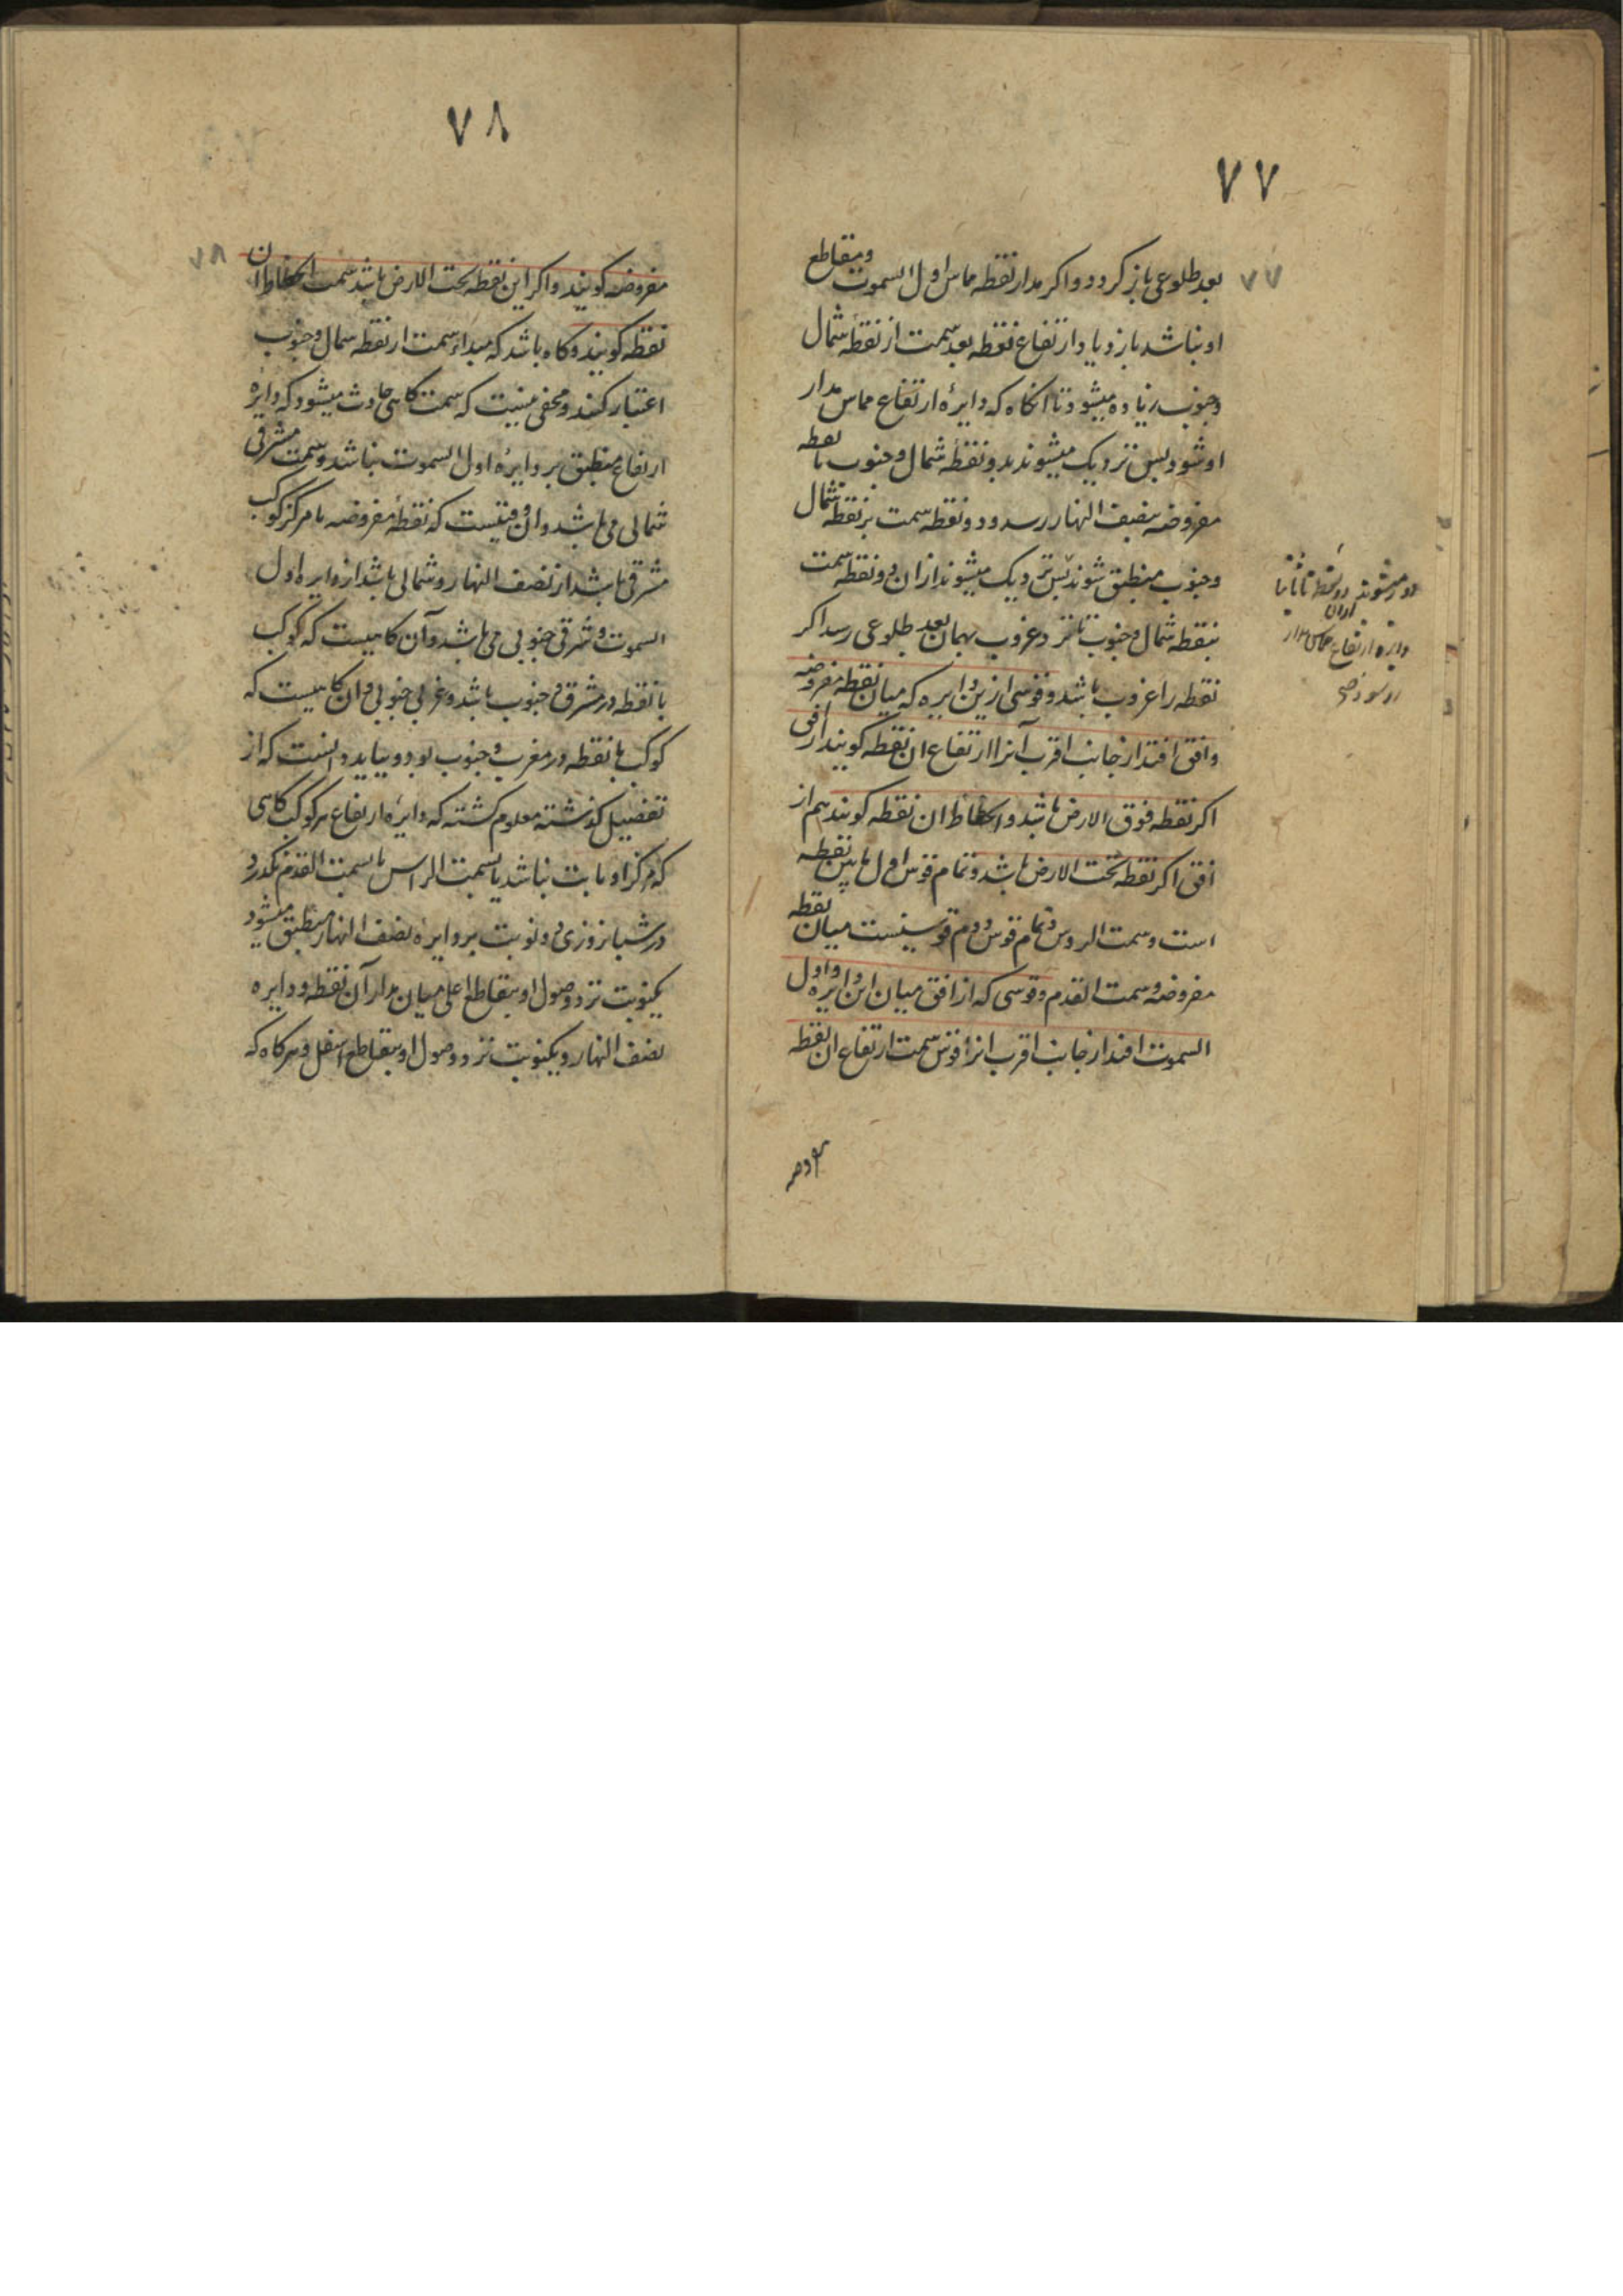 ۷۷
بعد طلوعی باز کردد و اکر مدار نقطه مماس اول السموت و متقاطع
او نباشد بازدیاد ارتفاع نقطه بعد سمت از نقطهٔ شمال
و جنوب زیاده میشود تا انکاه که دایرهٔ ارتفاع مماس مدار
او شود پس نزدیک میشوند بدو نقطهٔ شمال و جنوب تا نقطه
مفروضه بنصف النهار رسد و دو نقطه سمت بر نقطه شمال
و جنوب منطبق شوند پس نزدیک میشوند ازان دو نقطه سمت
بنقطه شمال و جنوب تا نزد غروب بهمان بعد طلوعی رسد اکر
نقطه را غروب باشد و قوسی ازین دایره که میان نقطه مفروضه
و افق افتد از جانب اقرب آنرا ارتفاع ان نقطه کویند از افق
اکر نقطه فوق الارض باشد و انحطاط ان نقطه کویند هم از
افق اکر نقطه تحت الارض باشد و تمام قوس اول مابین نقطه
است و سمت الروس و تمام قوس دوم قوسیست میان نقطه
مفروضه و سمت القدم و قوسی که از افق میان این دایره و اول
السموت افتد از جانب اقرب انرا قوس سمت ارتفاع ان نقطه
۷۷
دور میشوند دو نقطه ثانیا
ازان
دایره ارتفاع مماس مدار
۷۸
مفروضه کویند و اکر این نقطه تحت الارض باشد سمت انحطاط ان
نقطه کویند و کاه باشد که مبداء سمت از نقطه شمال و جنوب
اعتبار کنند و مخفی نیست که سمت کاهی حادث میشود که دایرهٔ
ارتفاع منطبق بر دایرهٔ اول السموت نباشد و سمت مشرقی
شمالی می باشد و ان وقتیست که نقطهٔ مفروضه یا مرکز کوکب
مشرقی باشد از نصف النهار و شمالی باشد از دایره اول
السموت و شرقی جنوبی می باشد و آن کاهیست که کوکب
یا نقطه در مشرق و جنوب باشد و غربی جنوبی و ان کاهیست که
کوکب یا نقطه در مغرب و جنوب بود و بباید دانست که از
تفصیل کذشته معلوم کشته که دایرهٔ ارتفاع هر کوکب کاهی
که مرکز او ثابت نباشد یا بسمت الراس یا سمت القدم نکذرد
در شبانروزی دو نوبت بر دایرهٔ نصف النهار منطبق میشود
یکنوبت نزد وصول او بتقاطع اعلی میان مدار آن نقطه و دایره
نصف النهار و یکنوبت نزد وصول او بتقاطع اسفل و هرکاه که
۷۸